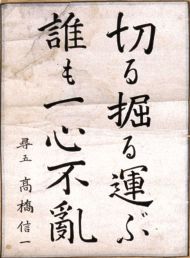 切る掘る運ぶ
誰も一心不亂
尋五 高橋信一